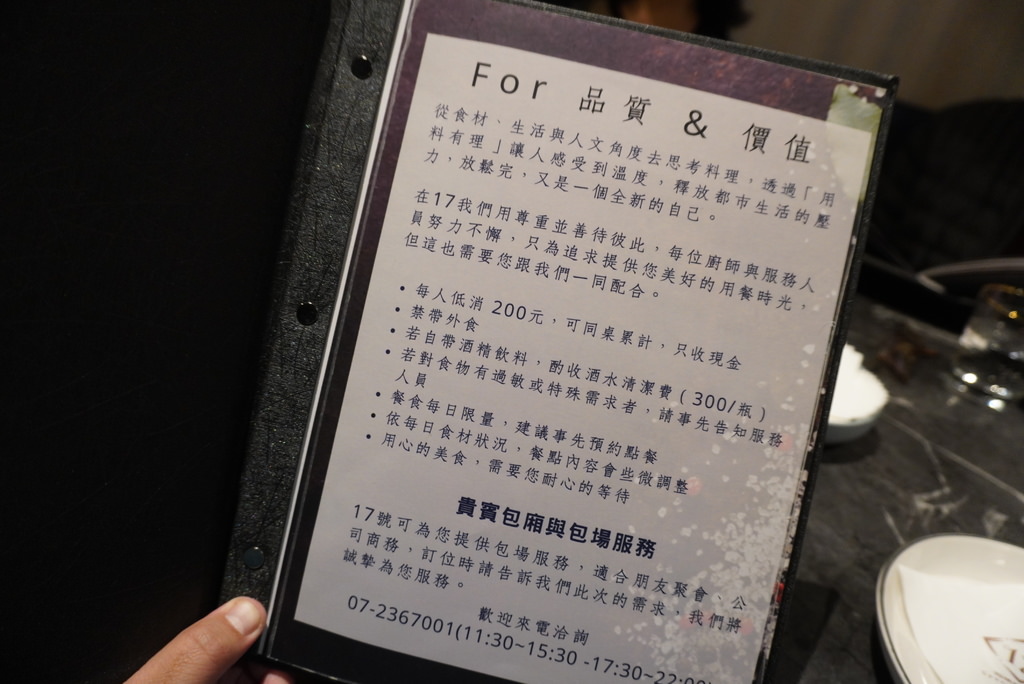 For 品質 & 價值
從食材、生活與人文角度去思考料理，透過「用
料有理」讓人感受到溫度，釋放都市生活的壓
力，放鬆完，又是一個全新的自己。
在17我們用尊重並善待彼此，每位廚師與服務人
員努力不懈，只為追求提供您美好的用餐時光，
但這也需要您跟我們一同配合。
• 每人低消 200元，可同桌累計，只收現金
• 禁帶外食
• 若自帶酒精飲料，酌收酒水清潔費（300/瓶）
• 若對食物有過敏或特殊需求者，請事先告知服務
人員
• 餐食每日限量，建議事先預約點餐
• 依每日食材狀況，餐點內容會些微調整
• 用心的美食，需要您耐心的等待
貴賓包廂與包場服務
17號可為您提供包場服務，適合朋友聚會、公
司商務，訂位時請告訴我們此次的需求，我們將
誠摯為您服務。
歡迎來電洽詢
07-2367001(11:30~15:30 -17:30~22:00)